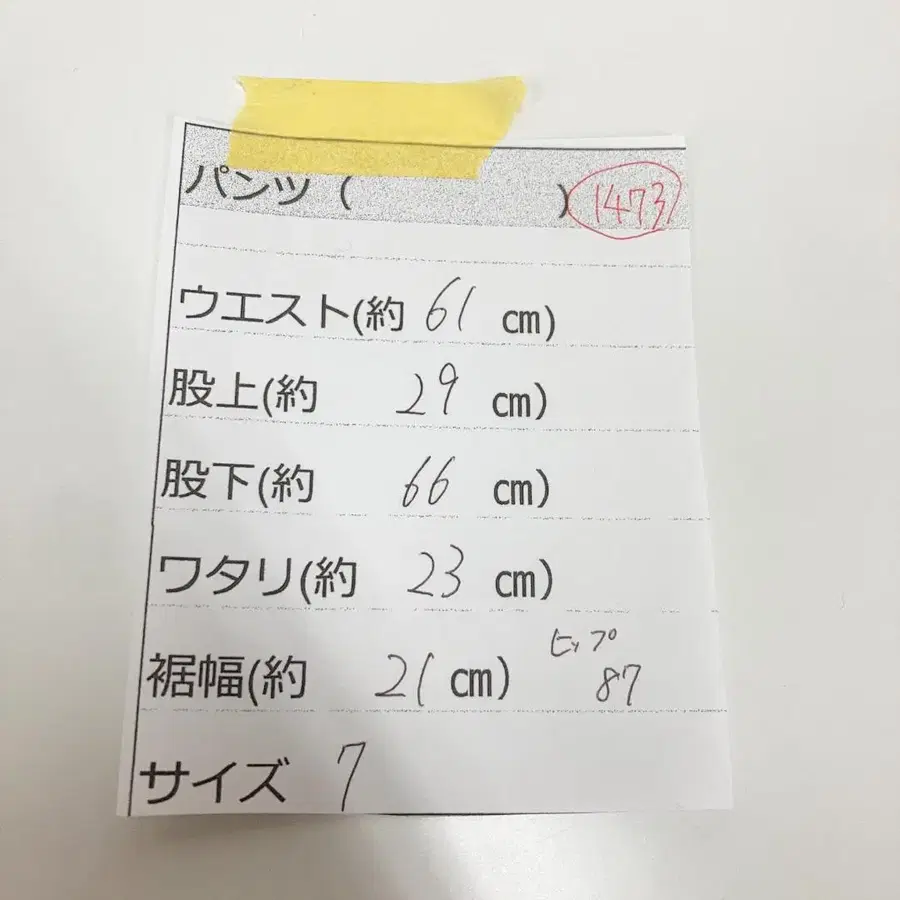 パンツ ( ) 1473
ウエスト(約 61 cm)
股上(約 29 cm)
股下(約 66 cm)
ワタリ(約 23 cm)
ヒップ
裾幅(約 21 cm) 87
サイズ 7